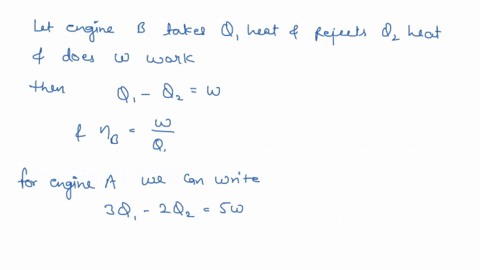 Let engine B takes Q₁ heat & rejects Q₂ heat
& does w work
then Q₁ - Q₂ = w
& η_B = w/Q₁
for engine A we can write
3Q₁ - 2Q₂ = 5w